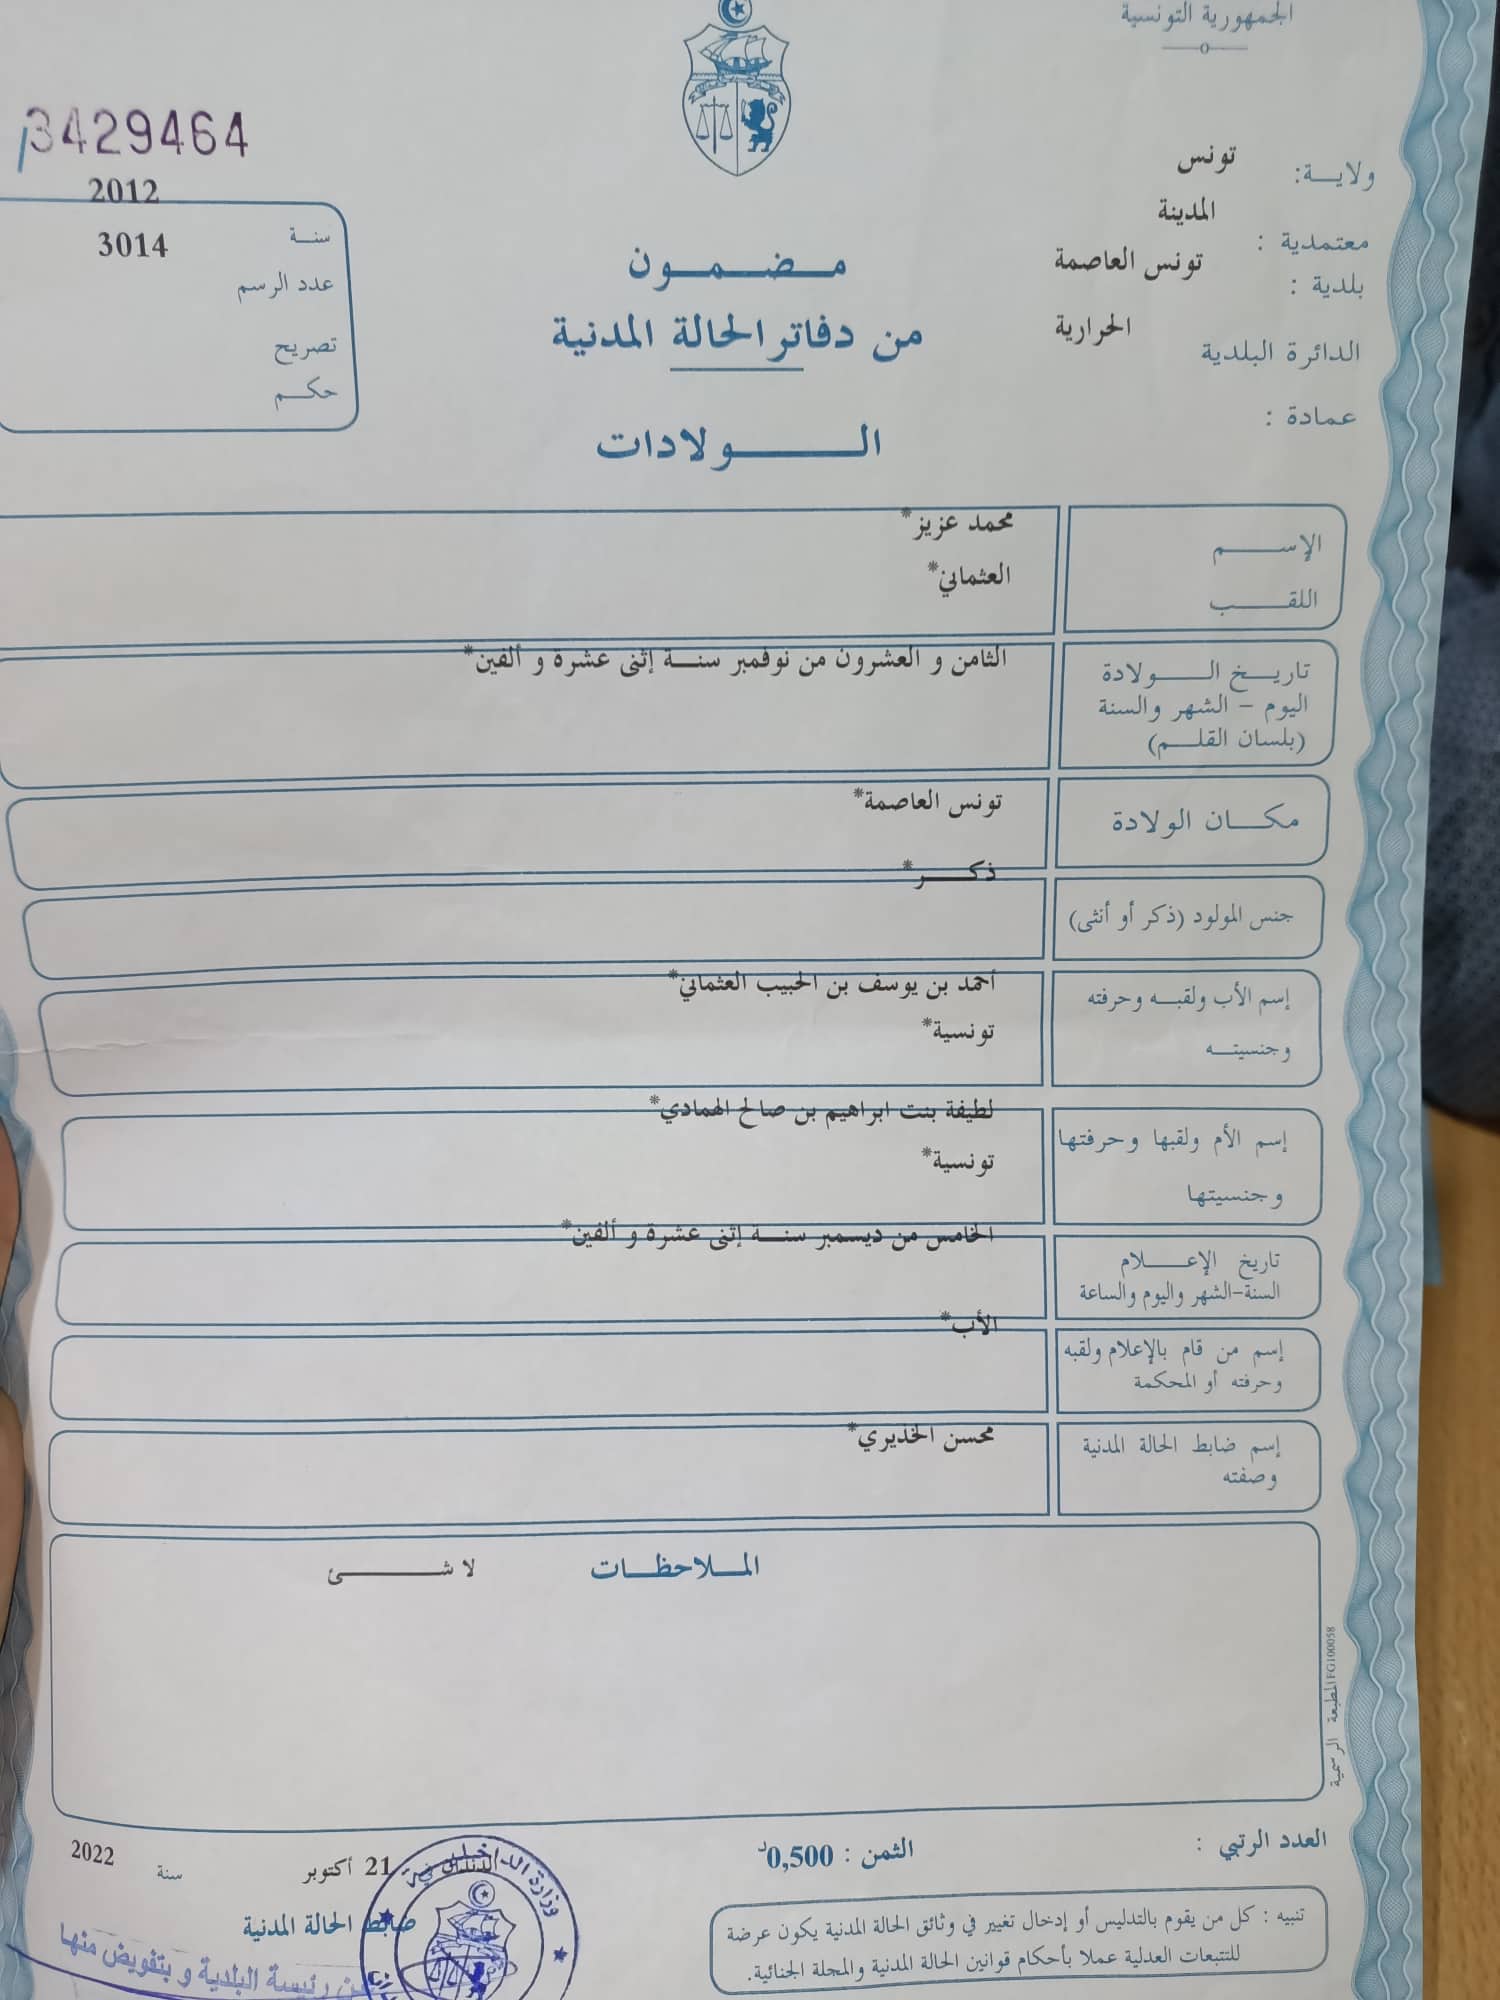 الجمهورية التونسية
3429464
ولايـــة: تونس
معتمدية : المدينة
بلدية : تونس العاصمة
الدائرة البلدية الحرارية
عمادة :
2012
سنـــة 3014
عدد الرسم
تصريح
حكـــم
مـــضـــمـــون
من دفاتر الحالة المدنية
الـــــولادات
الإســــم محمد عزيز*
اللقـــــب العثماني*
تاريـــخ الـــــولادة
اليوم - الشهر والسنة
(بلسان القلـــم)
الثامن و العشرون من نوفمبر سنـــة إثنى عشرة و ألفين*
مكـــان الولادة تونس العاصمة*
جنس المولود (ذكر أو أنثى) ذكـــــر*
إسم الأب ولقبـــه وحرفته أحمد بن يوسف بن الحبيب العثماني*
وجنسيتـــه تونسية*
إسم الأم ولقبها وحرفتها لطيفة بنت ابراهيم بن صالح الهمادي*
وجنسيتها تونسية*
تاريخ الإعـــــلام
السنة-الشهر واليوم والساعة
الخامس من ديسمبر سنـــة إثنى عشرة و ألفين*
إسم من قام بالإعلام ولقبه
وحرفته أو المحكمة
الأب*
إسم ضابط الحالة المدنية
وصفته
محسن الخذيري*
المـــلاحظـــات لا شـــــــئ
المطبعة الرسمية FG100058
العدد الرتبي :
الثمن : 0,500د
21 أكتوبر سنة 2022
ضابط الحالة المدنية
وزارة الداخلية
عن رئيسة البلدية و بتفويض منها
تنبيه : كل من يقوم بالتدليس أو إدخال تغيير في وثائق الحالة المدنية يكون عرضة
للتتبعات العدلية عملا بأحكام قوانين الحالة المدنية والمجلة الجنائية.